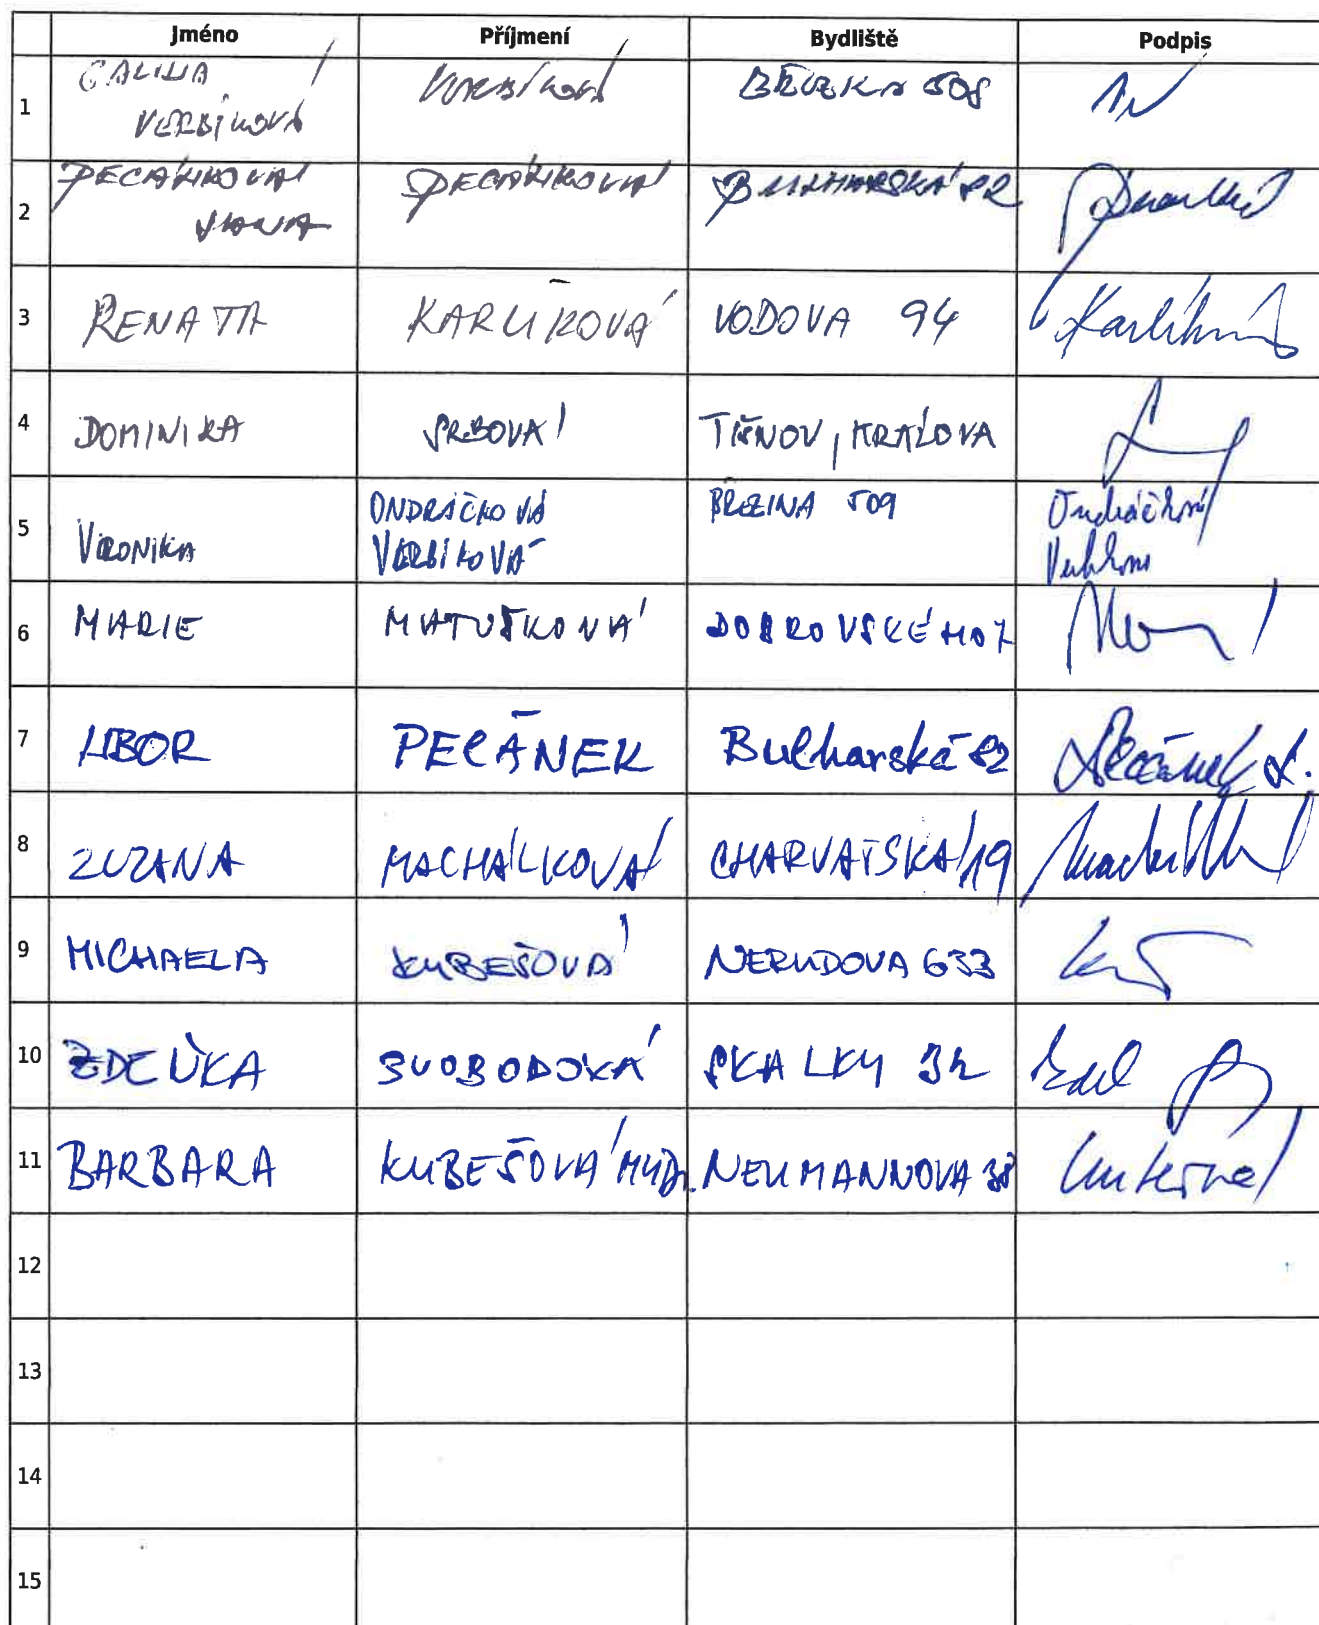 Jméno Příjmení Bydliště Podpis
1 GALINA VERBÍKOVÁ VERBÍKOVÁ 508
2 PECÁNKOVÁ JANA PECÁNKOVÁ BULHARSKÁ 82
3 RENATA KARLÍKOVÁ VODOVA 94 Karlíková
4 DOMINIKA SRBOVÁ TIŠNOV, KRÁLOVA
5 VERONIKA ONDRÁČKOVÁ VERBÍKOVÁ BŘEZINA 509 Ondráčková
6 MARIE MATUŠKOVÁ DOBROVSKÉHO 7
7 LIBOR PECÁNEK Bulharská 82 Pecánek L.
8 ZUZANA MACHÁLKOVÁ CHARVATSKÁ 19
9 MICHAELA KUBEŠOVÁ NERUDOVA 633
10 ZDEŇKA SVOBODOVÁ SKALKY
11 BARBARA KUBEŠOVÁ MUDr. NEUMANNOVA 38
12
13
14
15